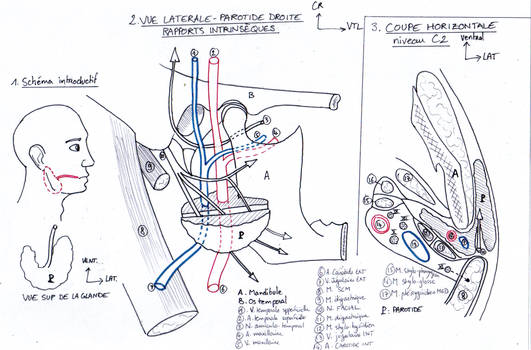 2. VUE LATERALE - PAROTIDE DROITE
RAPPORTS INTRINSÈQUES
CR
VTL
3. COUPE HORIZONTALE
niveau C2
Ventral
LAT
1. Schéma introductif
P
VENT.
LAT.
VUE SUP DE LA GLANDE
B
A
P
8
9
A. Mandibole
B. Os temporal
1. V. temporale superficielle
2. A. temporale superficielle
3. N. auriculo-temporal
4. A. maxillaire
5. V. maxillaire
6 A. Carotide EXT
7 V. Jugulaire EXT
8 M. SCM
9 M. digastrique
10 N. FACIAL
11 M. digastrique
12 M. stylo hyoïdien
13 V. jugulaire INT
14 A. CAROTIDE INT
15 M. stylo-pharyngien
16 M. stylo-glosse
17 M. ptérygoïdien MED
P: PAROTIDE
A
P